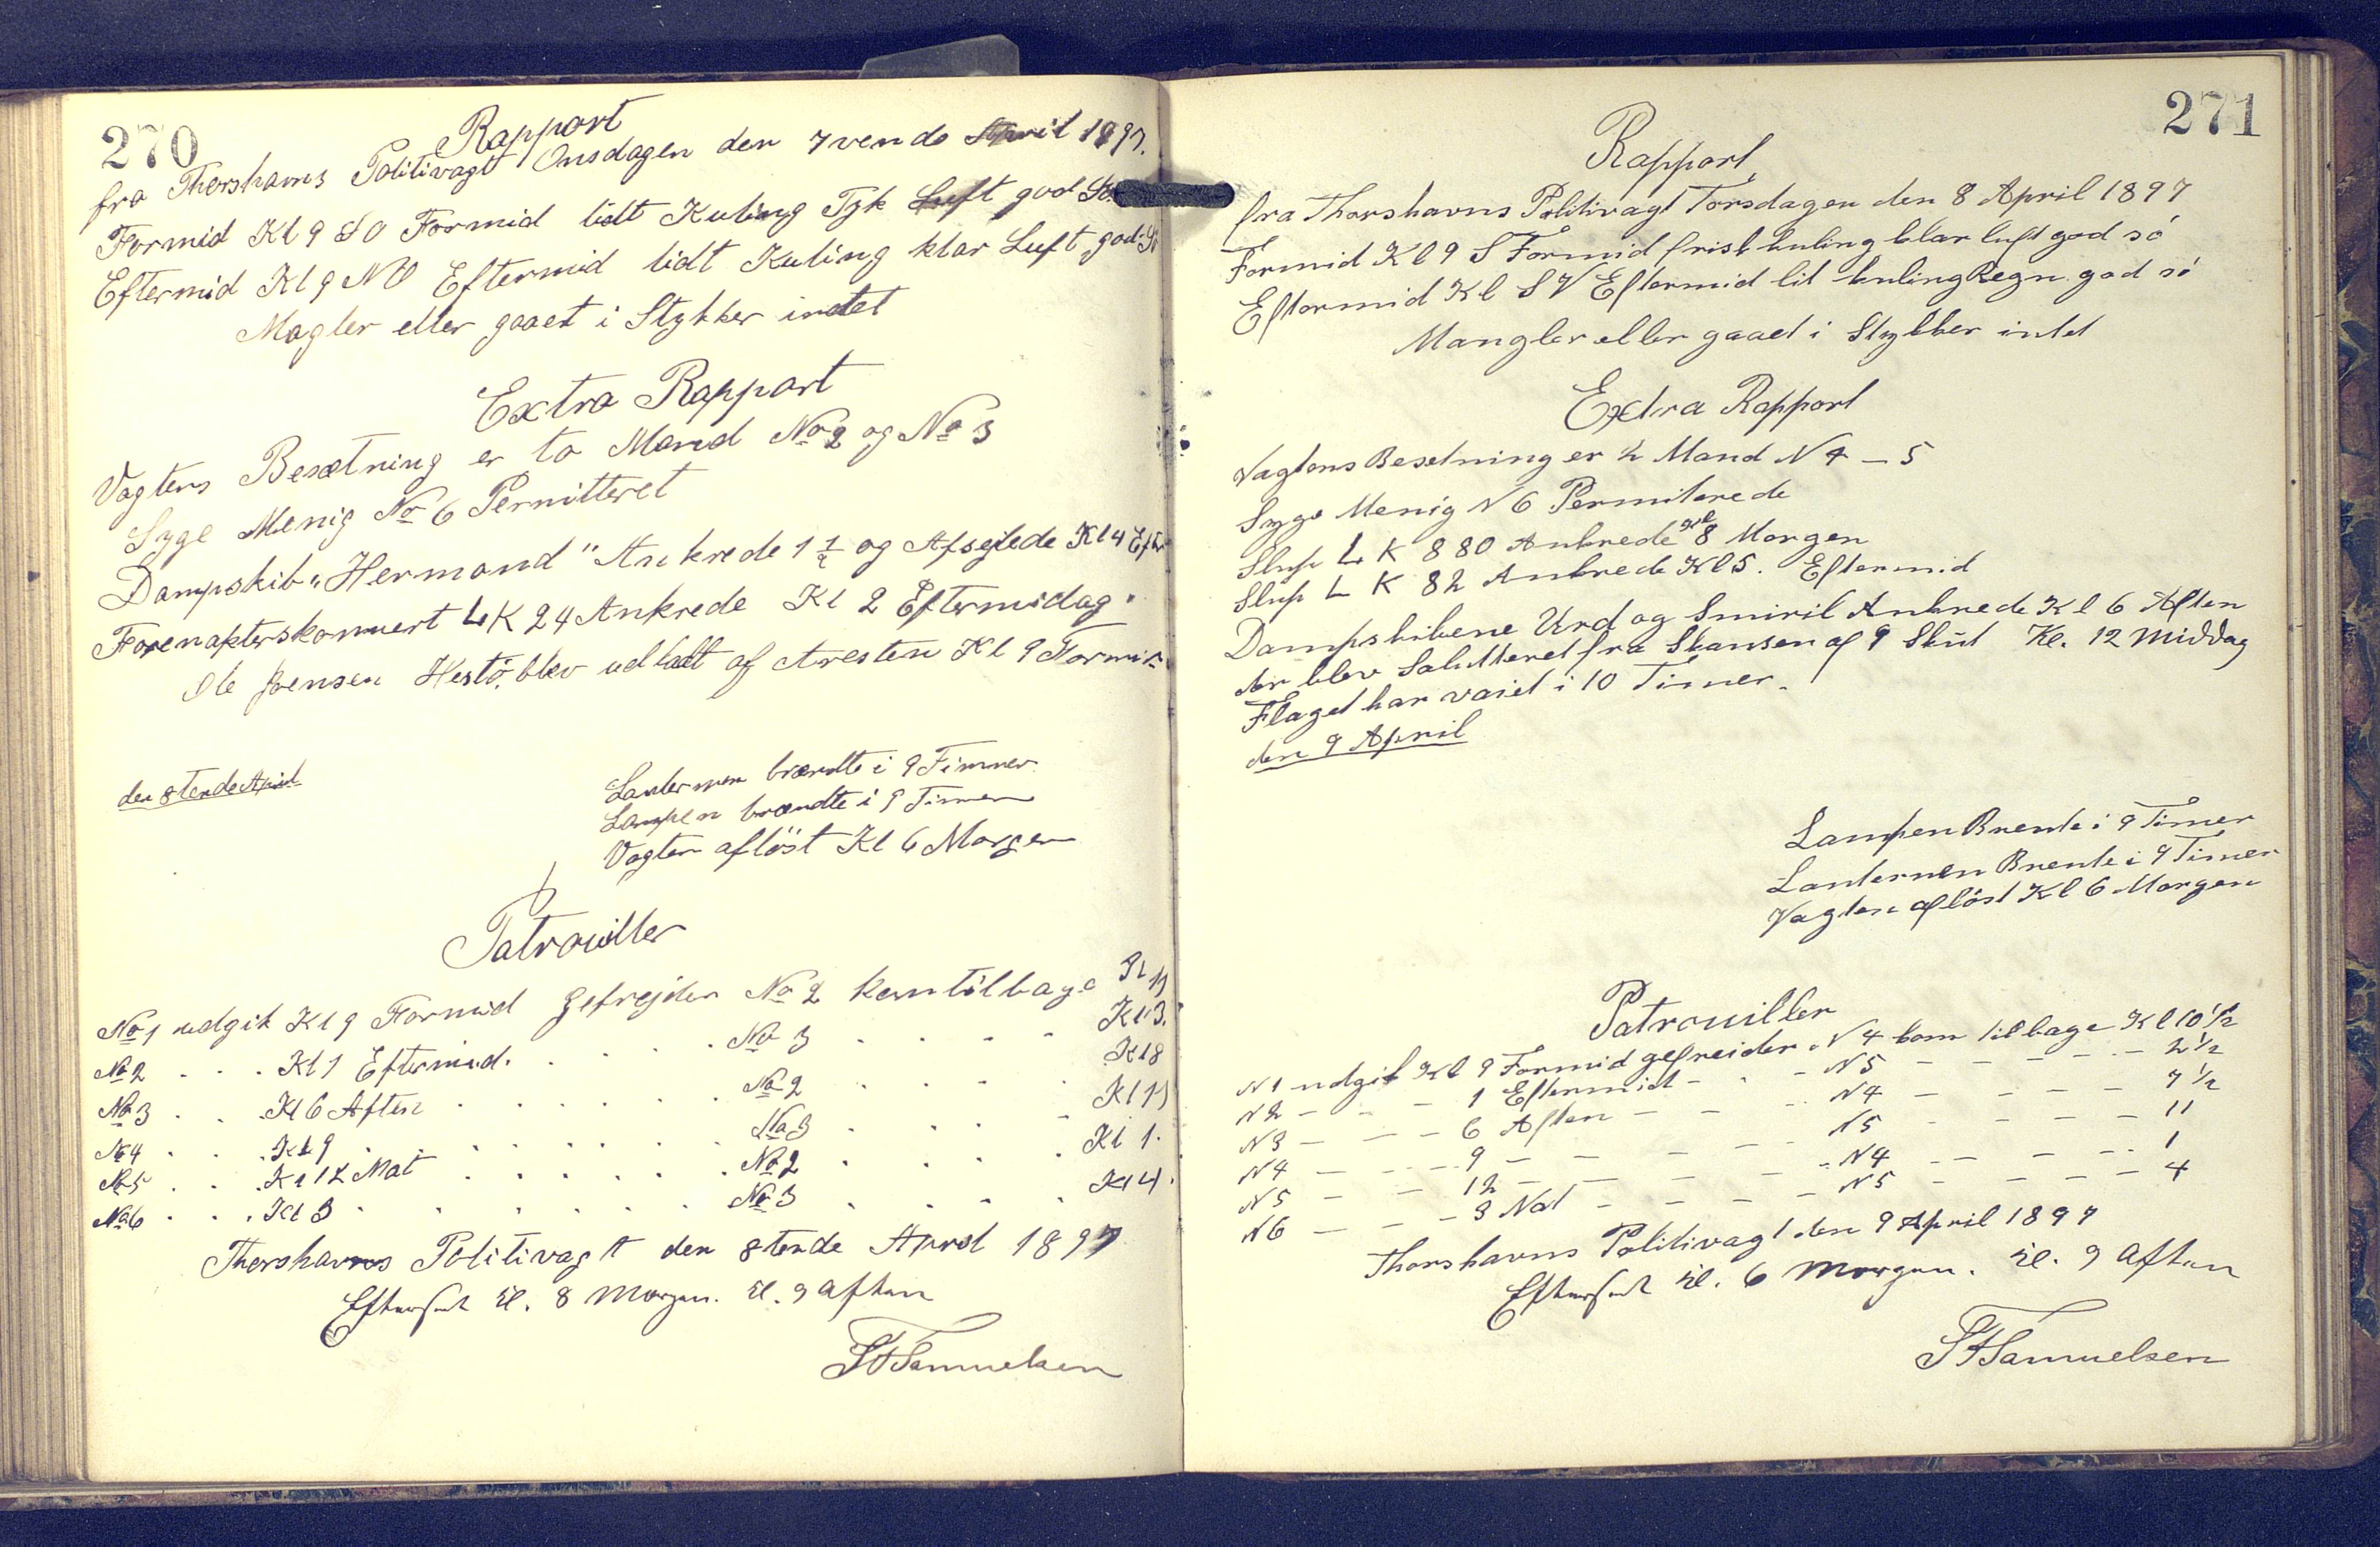 270
Rapport
fra Thorshavns Politivagt Onsdagen den 7vende April 1897.
Formid Kl 9 SO Formid lidt Kuling Tyk Luft god
Eftermid Kl 9 NO Eftermid lidt Kuling klar Luft god
Magler eller gaaet i Stykker intet
Extra Rapport
Vagtens Besætning er to Mand No 2 og No 3
Syge Menig No 6 Permitteret
Dampskib „Hermond" Ankrede 1 1/2 og Afsejlede Kl 4 Efter
LK 24 Ankrede Kl 2 Eftermidag
Ole Joensen Hestö blev udladt af Aresten Kl 9 Formid
den 8tende April
Lanternen brændte i 9 Timer
Lampen brændte i 9 Timer
Vagten aflöst Kl 6 Morgen
Patrouiller
No 1 udgik Kl 9 Formid Gefrejder No 2 kom tilbage Kl 11
No 2 . . . Kl 1 Eftermid. . . . . No 3 . . . . Kl 3.
No 3 . . . Kl 6 Aften . . . . . . No 2 . . . . Kl 8
No 4 . . . Kl 9 . . . . . . No 3 . . . . Kl 11
No 5 . . . Kl 12 Nat . . . . . . No 2 . . . . Kl 1.
No 6 . . . Kl 3 . . . . . . No 3 . . . . Kl 4.
Thorshavns Politivagt den 8tende April 1897
Efterset Kl. 8 Morgen. Kl. 9 Aften
Samuelsen
271
Rapport
fra Thorshavns Politivagt Torsdagen den 8 April 1897
Formid Kl 9 S Formid frisk kuling klar luft god sö
Eftormid Kl SV Eftermid lit kuling Regn god sö
Mangler eller gaaet i Stykker intet
Extra Rapport
Vagtens Besetning er 2 Mand N 4 - 5
Syge Menig N 6 Permiterede
Slup LK 880 Ankrede Kl 8 Morgen
Slup LK 82 Ankrede Kl 5. Eftermid
Dampskibene Urd og Smiril Ankrede Kl 6 Aften
der blev Salutteret fra Skansen af 9 Skut Kl. 12 Middag
Flaget har vaiet i 10 Timer.
den 9 April
Lampen Brente i 9 Timer
Lanternen Brente i 9 Timer
Vagten aflöst Kl 6 Morgen
Patrouiller
N 1 udgik Kl 9 Formid gefreider N 4 kom tilbage Kl 10 1/2
N 2 - - - 1 Eftermid - - - N 5 - - - - 2 1/2
N 3 - - - 6 Aften - - - N 4 - - - - 7 1/2
N 4 - - - 9 - - - - N 5 - - - - 11
N 5 - - - 12 - - - - N 4 - - - - 1
N 6 - - - 3 Nat - - - N 5 - - - - 4
Thorshavns Politivagt den 9 April 1897
Efterset Kl. 6 Morgen. Kl. 9 Aften
Samuelsen